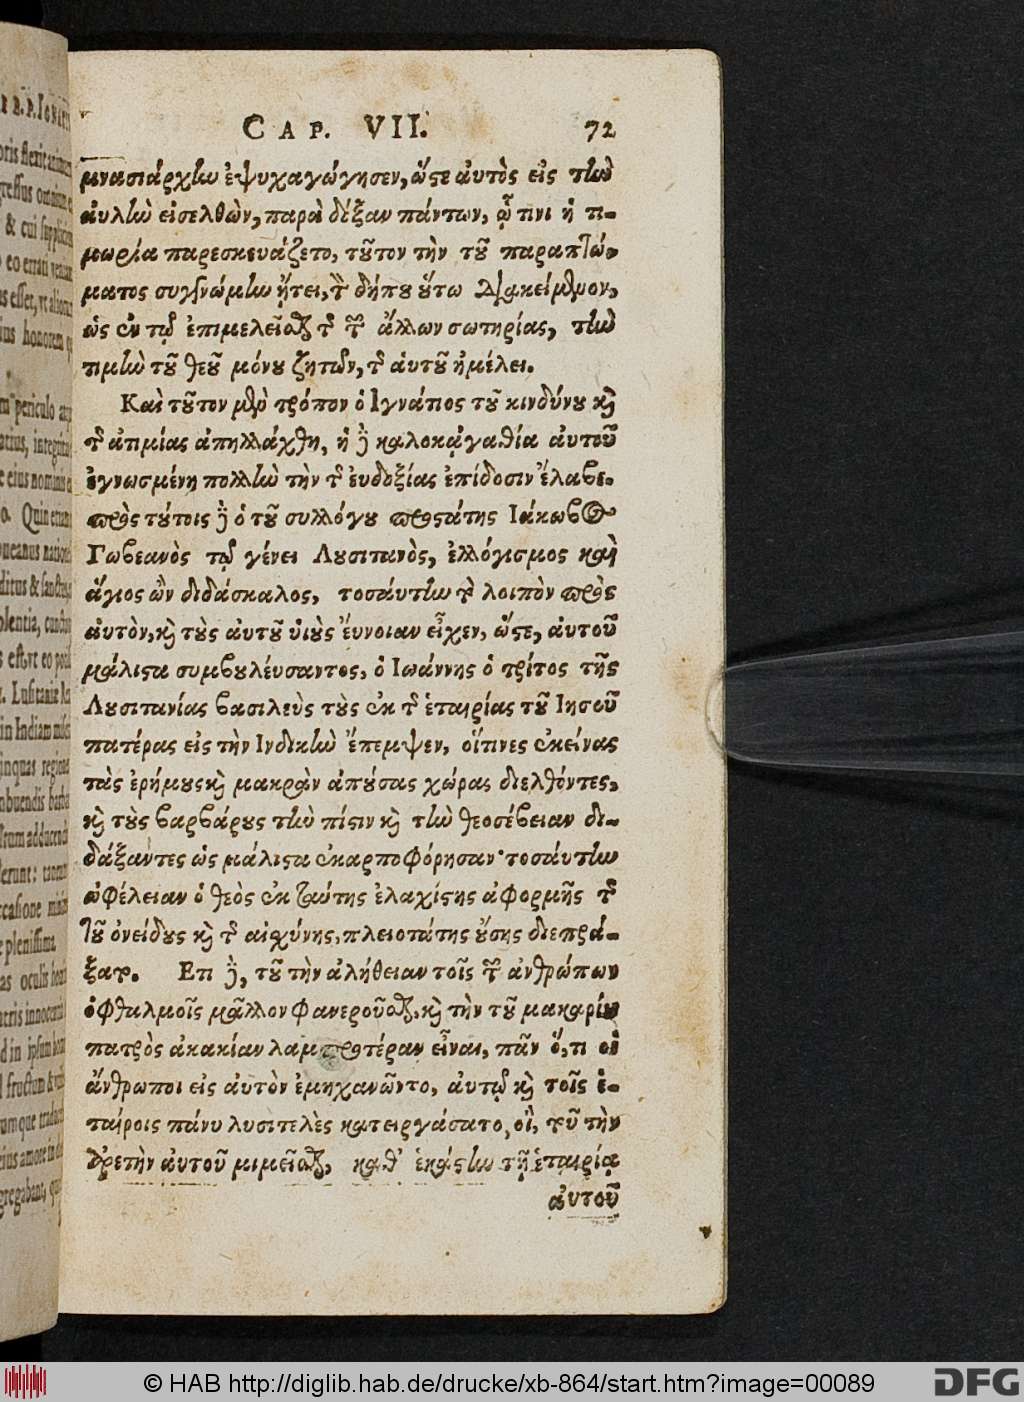 CAP. VII. 72
μνασιάρχην ἐψυχαγώγησεν, ὥςε ἀυτὸς εἰς τὴν
ἀυλὴν εἰσελθὼν, παρὰ δόξαν πάντων, ᾧ τινι ἡ τι-
μωρία παρεσκευάζετο, τοῦτον τὴν τοῦ παραπτώ-
ματος συγγνώμην ᾔτει, τοῦ δήπου οὕτω διακείμενον,
ὡς ἐν τῷ ἐπιμελεῖσθαι τῆς τῶν ἄλλων σωτηρίας, τὴν
τιμὴν τοῦ θεοῦ μόνου ζητῶν, τῆς ἁυτοῦ ἠμέλει.
Καὶ τοῦτον μὲν τρόπον ὁ Ιγνάτιος τοῦ κινδύνου καὶ
τῆς ἀτιμίας ἀπηλλάχθη, ἡ δὲ καλοκἀγαθία ἀυτοῦ
ἐγνωσμένη πολλὴν τὴν τῆς ἐυδοξίας ἐπίδοσιν ἔλαβε.
πρὸς τούτοις δὲ ὁ τοῦ συλλόγου προςάτης Ιάκωβος
Γωβεανὸς τῷ γένει Λυσιτανὸς, ἐλλόγισμος καὶ
ἅγιος ὢν διδάσκαλος, τοσάυτην τὸ λοιπὸν πρὸς
ἀυτὸν, καὶ τοὺς ἀυτοῦ ὑιοὺς ἔυνοιαν εἶχεν, ὥςε, ἀυτοῦ
μάλιςα συμβουλέυσαντος, ὁ Ιωάννης ὁ τρίτος τῆς
Λυσιτανίας βασιλεὺς τοὺς ἐκ τῆς ἑταιρίας τοῦ Ιησοῦ
πατέρας εἰς τὴν Ινδικὴν ἔπεμψεν, οἵτινες ἐκείνας
τὰς ἐρήμους καὶ μακρὰν ἀπούσας χώρας διελθόντες,
καὶ τοὺς βαρβάρους τὴν πίςιν καὶ τὴν θεοσέβειαν δι-
δάξαντες ὡς μάλιςα ἐκαρποφόρησαν· τοσάυτην
ὠφέλειαν ὁ θεὸς ἐκ ταύτης ἐλαχίςης ἀφορμῆς τῆς
τοῦ ὀνείδους καὶ τῆς αἰσχύνης, πλειοτάτης οὔσης διεπρά-
ξατο. Ετι δὲ, τοῦ τὴν ἀλήθειαν τοῖς τῶν ἀνθρώπων
ὀφθαλμοῖς μᾶλλον φανεροῦσθαι, καὶ τὴν τοῦ μακαρίου
πατρὸς ἀκακίαν λαμπροτέραν εἶναι, πᾶν ὅ, τι οἱ
ἄνθρωποι εἰς ἀυτὸν ἐμηχανῶντο, ἀυτῷ καὶ τοῖς ἑ-
ταίροις πάνυ λυσιτελὲς κατειργάσατο, οἳ, τοῦ τὴν
ἀρετὴν ἀυτοῦ μιμεῖσθαι, καθ' ἑκάςην τῇ ἑταιρίᾳ
ἀυτοῦ
© HAB http://diglib.hab.de/drucke/xb-864/start.htm?image=00089
DFG